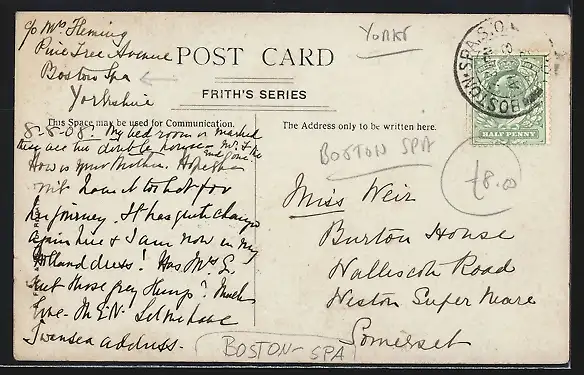 c/o Mrs Fleming
Pine Tree Avenue
Boston Spa
Yorkshire
YORKS
POST CARD
FRITH'S SERIES
This Space may be used for Communication.
The Address only to be written here.
BOSTON·SPA·S.O.
HALF PENNY
8-8-08. My bed room is marked
they are two double houses Mr F
end one
How is your Mother. Hope she
not have it too hot for
journey. It has quite changed
again here & I am now in my
Holland dress! Has Mrs G.
sent those
Much
love. M.E.N. Let me have
Swansea address.
BOSTON SPA
£8.00
Miss Weir
Burton House
Walliscote Road
Weston Super Mare
Somerset
BOSTON-SPA